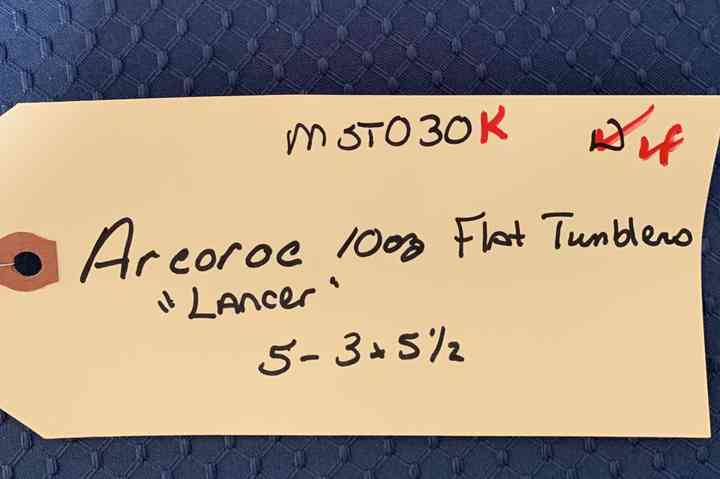 MST030K
Arcoroc 10oz Flat Tumblers
"Lancer"
5-3x5 1/2